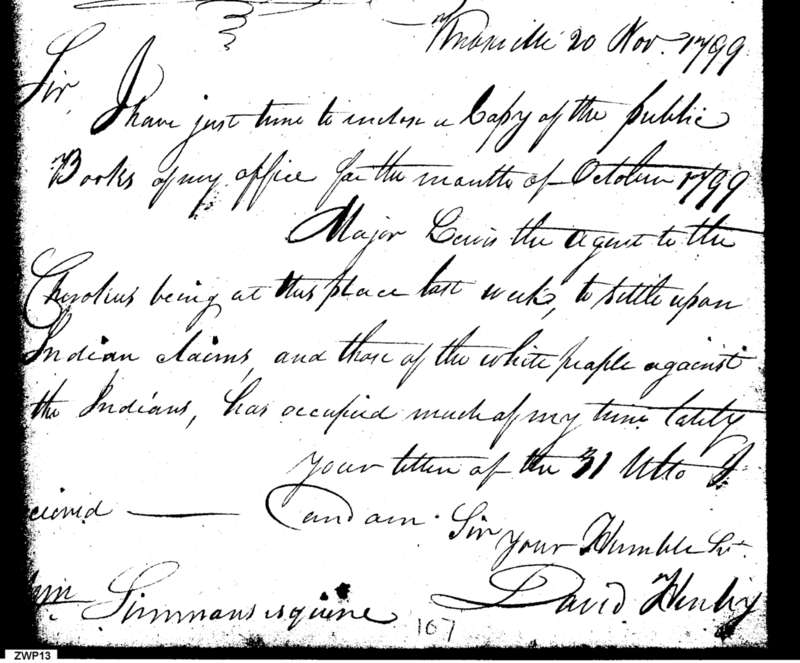 Knoxville 20 Nov. 1799
Sir
I have just time to inclose a Copy of the public
Books of my office for the month of October 1799
Major Lewis the agent to the
Cherokees being at this place last week, to settle upon
Indian claims, and those of the white people against
the Indians, has occupied much of my time lately
your letter of the 31 Ulto I
ceived — and am. Sir
your Humble St.
David Henley
Simmons esquire
107
ZWP13